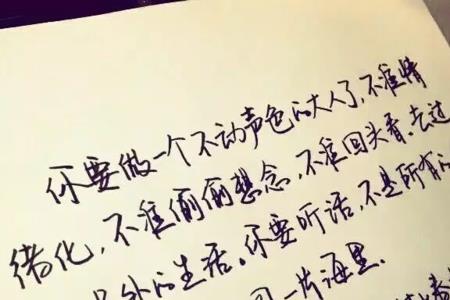 你要做一个不动声色的大人了.不准情
绪化,不准偷偷想念,不准回头看.去过
另外的生活.你要听话,不是所有的
同一片海里.